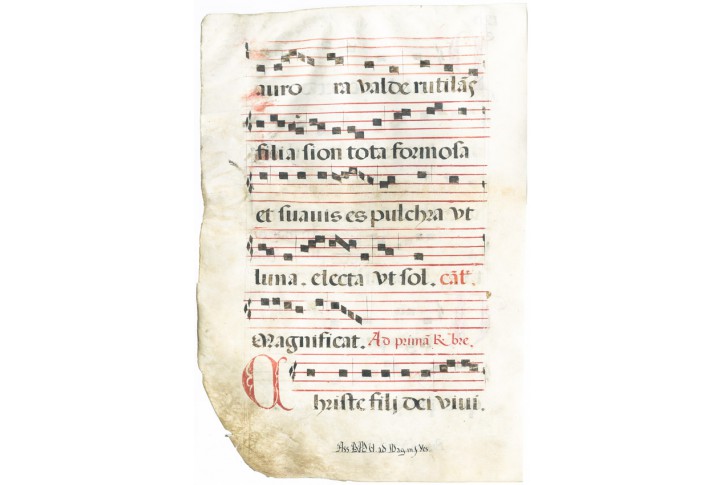 auro ra valde rutilãs
filia sion tota formosa
et suauis es pulchra vt
luna. electa vt sol. cãt.
Magnificat. Ad primã R bre.
Christe filj dei viui.
Ass BMV ad Magnif Ves.